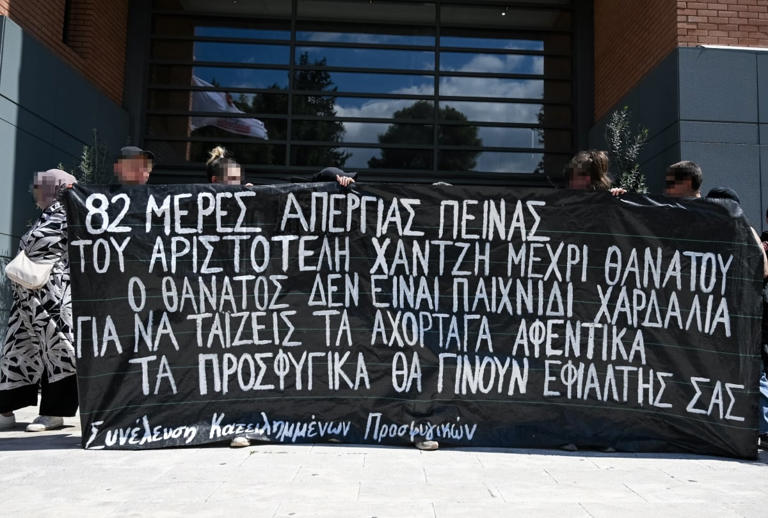 82 ΜΕΡΕΣ ΑΠΕΡΓΙΑΣ ΠΕΙΝΑΣ
ΤΟΥ ΑΡΙΣΤΟΤΕΛΗ ΧΑΝΤΖΗ ΜΕΧΡΙ ΘΑΝΑΤΟΥ
Ο ΘΑΝΑΤΟΣ ΔΕΝ ΕΙΝΑΙ ΠΑΙΧΝΙΔΙ ΧΑΡΔΑΛΙΑ
ΓΙΑ ΝΑ ΤΑΪΖΕΙΣ ΤΑ ΑΧΟΡΤΑΓΑ ΑΦΕΝΤΙΚΑ
ΤΑ ΠΡΟΣΦΥΓΙΚΑ ΘΑ ΓΙΝΟΥΝ ΕΦΙΑΛΤΗΣ ΣΑΣ
Συνέλευση Κατειλημμένων Προσφυγικών